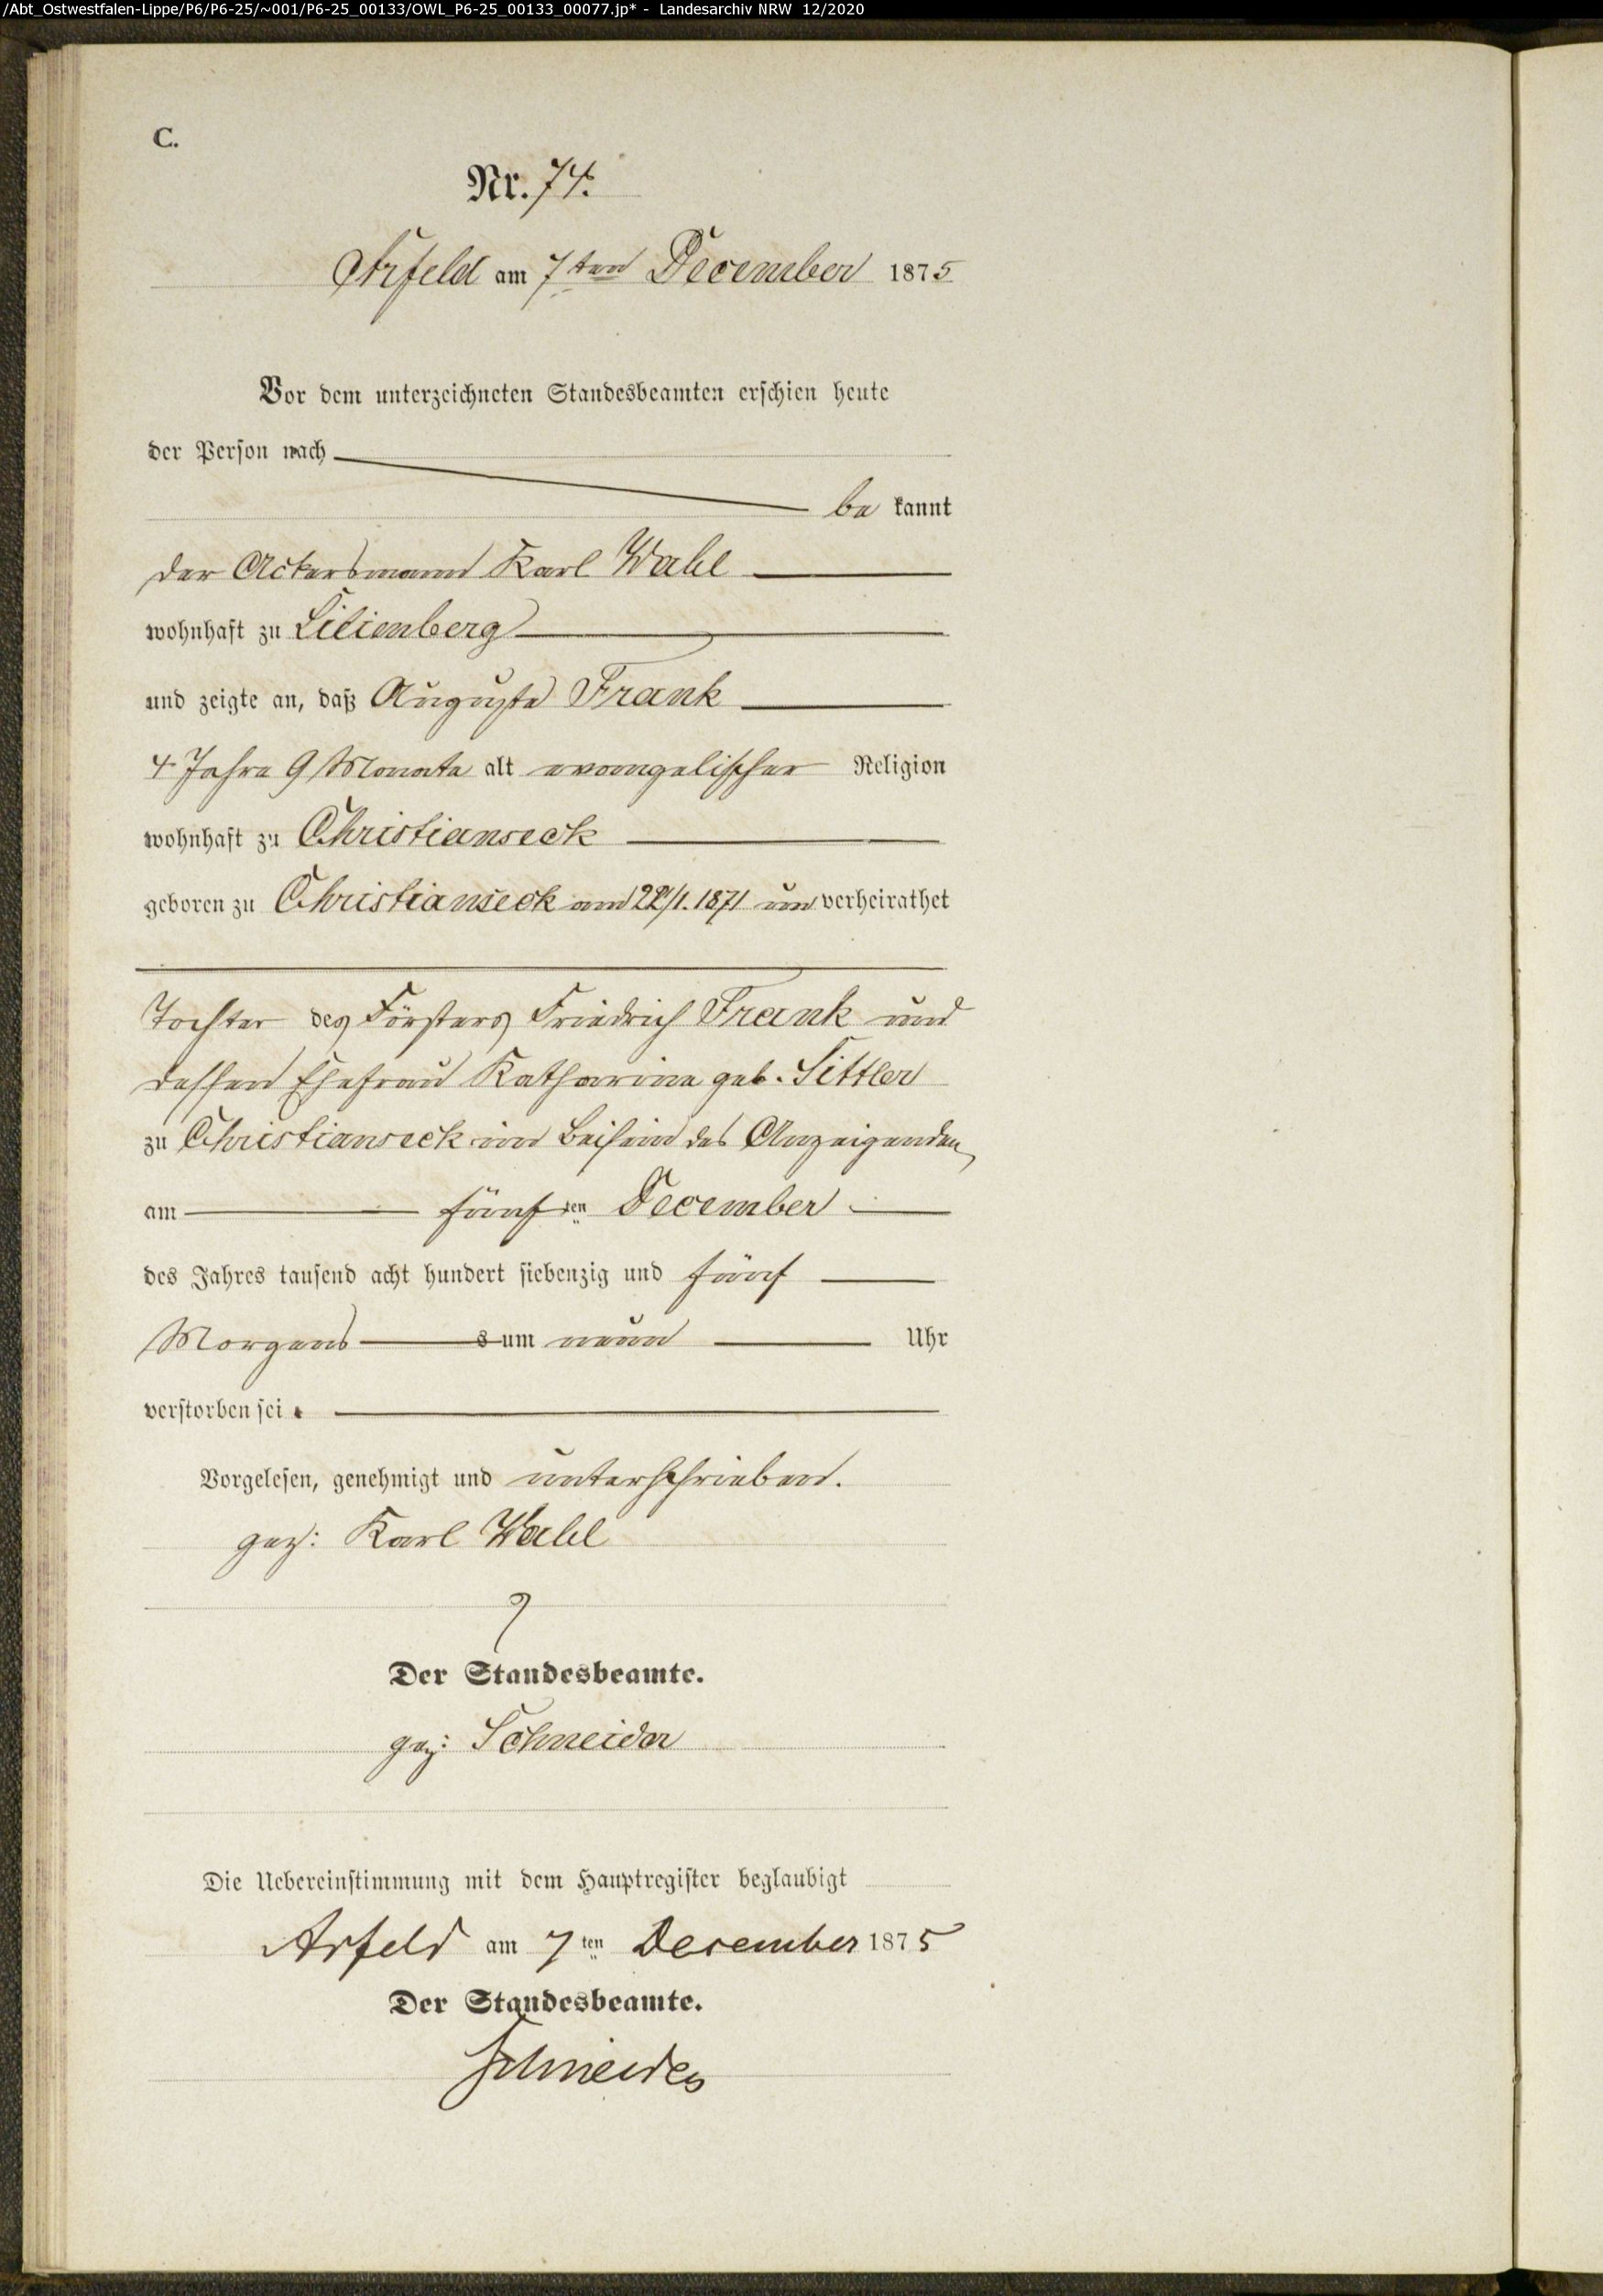 /Abt_Ostwestfalen-Lippe/P6/P6-25/~001/P6-25_00133/OWL_P6-25_00133_00077.jp* - Landesarchiv NRW 12/2020
C.
Nr. 74.
Arfeld am 7ten December 1875
Vor dem unterzeichneten Standesbeamten erschien heute
der Person nach
be kannt
der Ackersmann Karl Wahl
wohnhaft zu Lilienberg
und zeigte an, daß Auguste Frank
4 Jahre 9 Monate alt evangelischer Religion
wohnhaft zu Christianseck
geboren zu Christianseck am /1. 1871 un verheirathet
Tochter des Försters Friedrich Frank und
dessen Ehefrau Katharina geb. Sittler
zu Christianseck im Beisein des Anzeigenden
am fünften December
des Jahres tausend acht hundert siebenzig und fünf
Morgens s um neun Uhr
verstorben sei.
Vorgelesen, genehmigt und unterschrieben.
gez: Karl Wahl
Der Standesbeamte.
gez: Schneider
Die Uebereinstimmung mit dem Hauptregister beglaubigt
Arfeld am 7ten December 1875
Der Standesbeamte.
Schneider